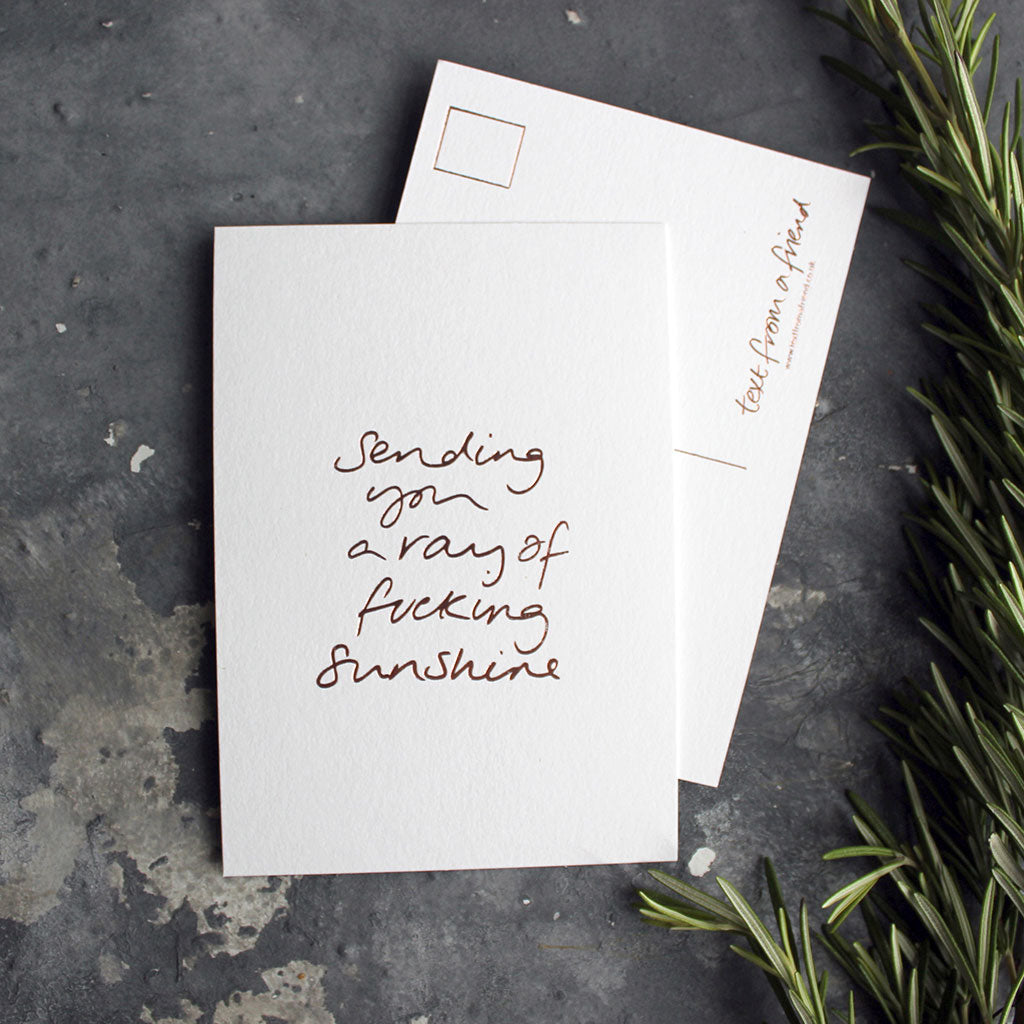 Sending
you
a ray of
fucking
Sunshine
text from a friend
www.textfromafriend.co.uk